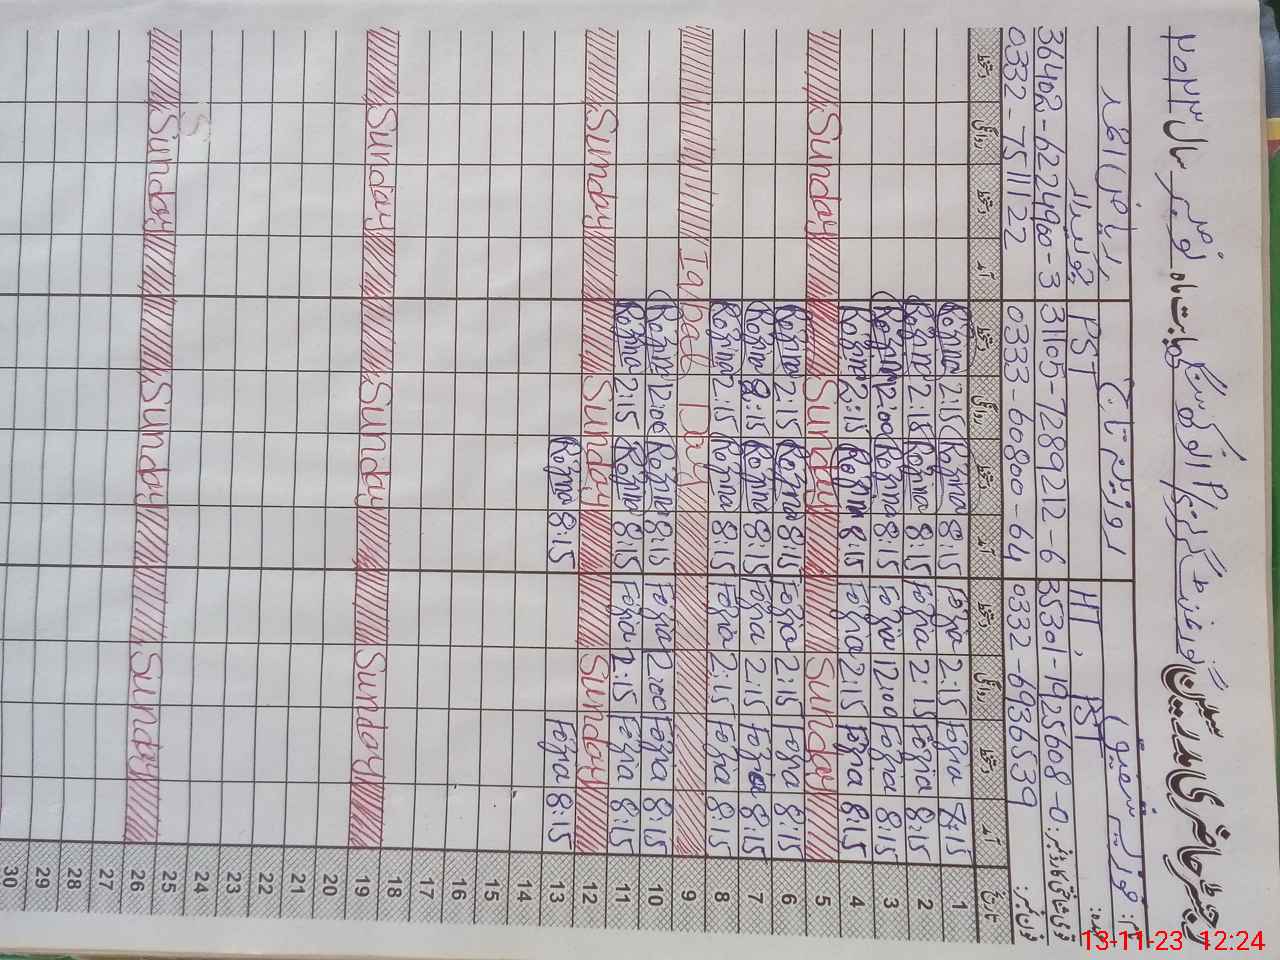 رجسٹر حاضری مدرسین گورنمنٹ گرلز پرائمری سکول بابت ماہ نومبر سال ۲۰۲۳
نام: فوزیہ شفیق روزینہ ریاض احمد
عہدہ: HT, PST PST چوکیدار
قومی شناختی کارڈ نمبر: 35301-1925608-0 31105-7289212-6 36402-6224960-3
فون نمبر: 0332-6936539 0333-60800-64 0332-7511122
تاریخ آمد دستخط روانگی دستخط آمد دستخط روانگی دستخط آمد دستخط روانگی دستخط
1 8:15 Fozia 2:15 Fozia 8:15 Rozina 2:15 Rozina
2 8:15 Fozia 2:15 Fozia 8:15 Rozina 2:15 Rozina
3 8:15 Fozia 12:00 Fozia 8:15 Rozina 12:00 Rozina
4 8:15 Fozia 2:15 Fozia 8:15 Rozina 2:15 Rozina
5 Sunday Sunday Sunday
6 8:15 Fozia 2:15 Fozia 8:15 Rozina 2:15 Rozina
7 8:15 Fozia 2:15 Fozia 8:15 Rozina 2:15 Rozina
8 8:15 Fozia 2:15 Fozia 8:15 Rozina 2:15 Rozina
9 Iqbal Day
10 8:15 Fozia 12:00 Fozia 8:15 Rozina 12:00 Rozina
11 8:15 Fozia 2:15 Fozia 8:15 Rozina 2:15 Rozina
12 Sunday Sunday Sunday
13 8:15 Fozia 8:15 Rozina
14
15
16
17
18
19 Sunday Sunday Sunday
20
21
22
23
24
25
26 Sunday Sunday Sunday
27
28
29
30
13-11-23 12:24